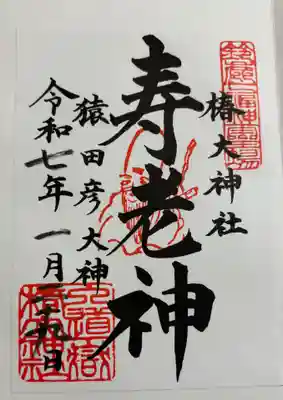 椿大神社
寿老神
猿田彦大神
令和七年一月二十九日